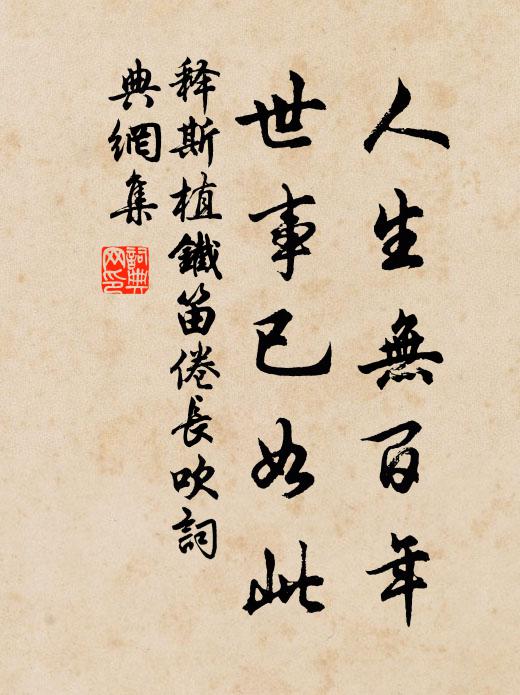 人生無百年
世事已如此
释斯植鐵笛倦長吹詞
典網集
詞典
网印